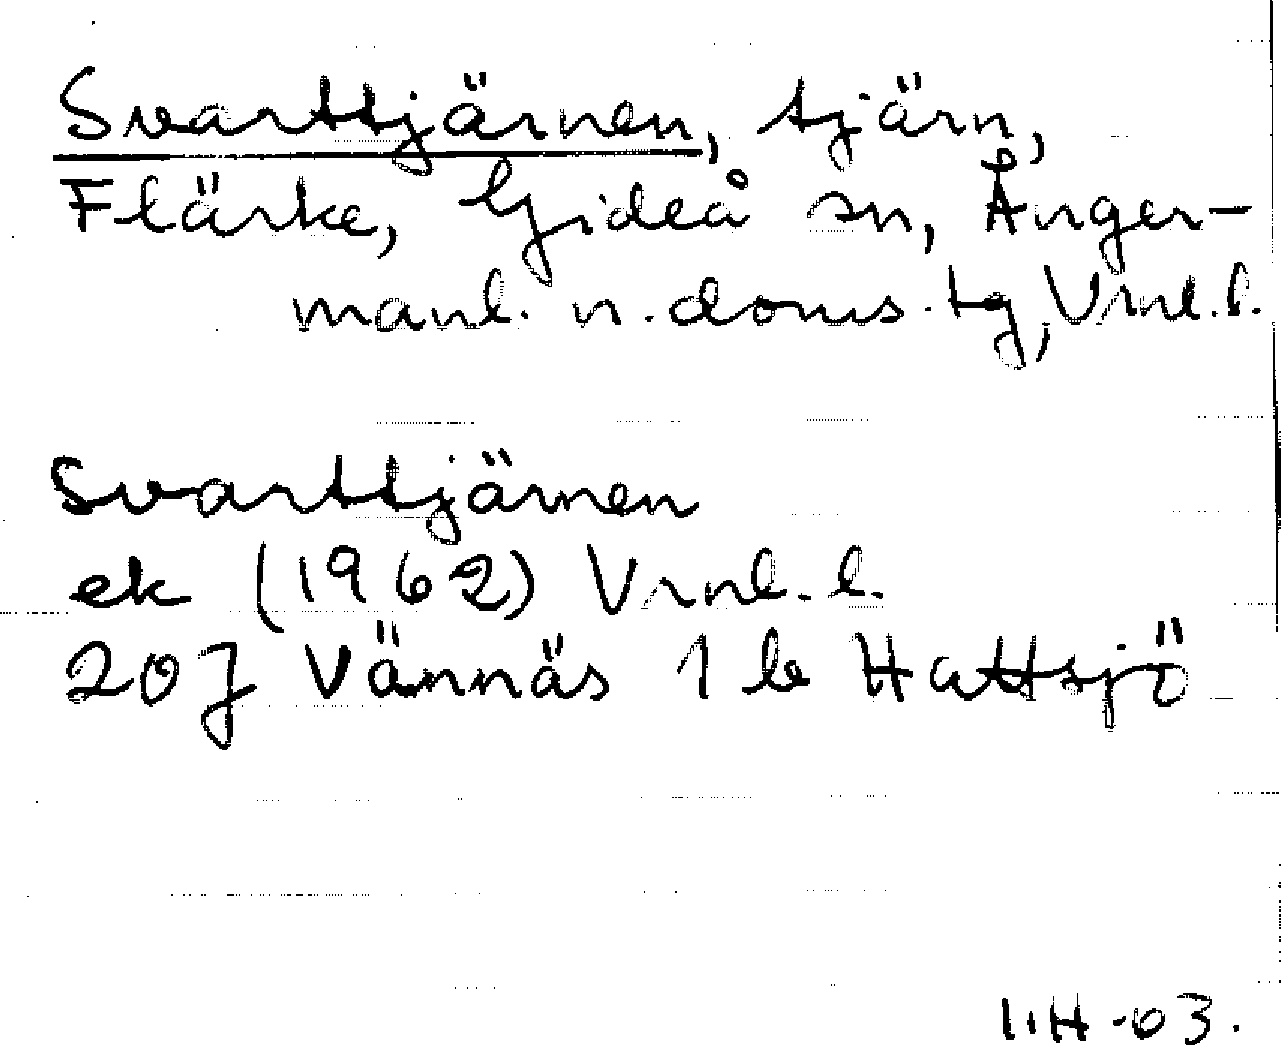 Svarttjärnen, tjärn,
Flärke, Gideå sn, Ånger-
manl. n. doms. tg, Vrnl. l.
Svarttjärnen
ek (1962) Vrnl. l.
20J Vännäs 1 b Hattsjö
IIH-03.